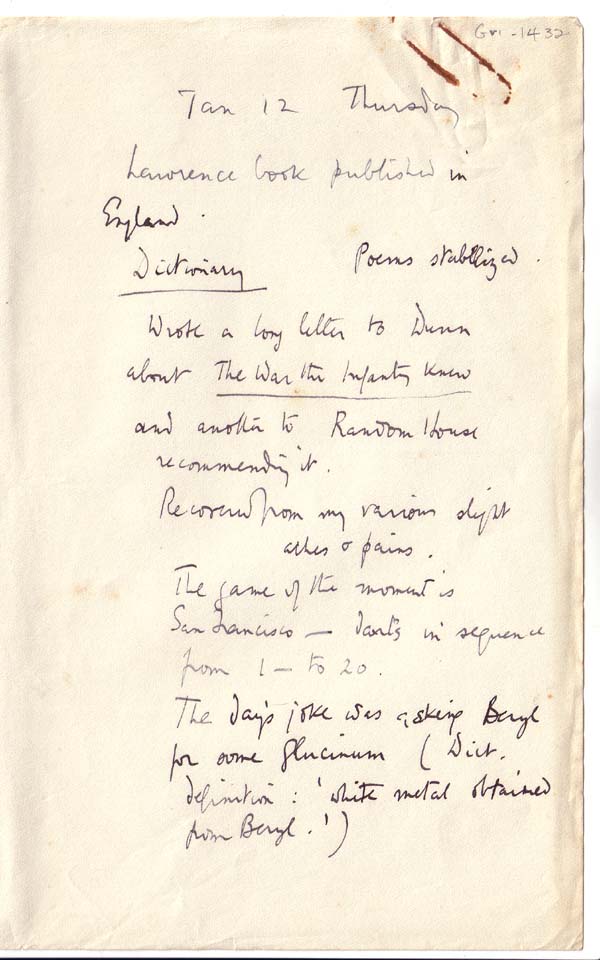 Gri -1432
Jan 12 Thursday
Lawrence book published in
England.
Dictionary Poems stabilized.
Wrote a long letter to Dunn
about The War the Infantry Knew
and another to Random House
recommending it.
Recovered from my various slight
aches & pains.
The game of the moment is
San Francisco — darts in sequence
from 1 — to 20.
The day's joke was asking Beryl
for some glucinum (Dict.
definition: 'white metal obtained
from Beryl.')